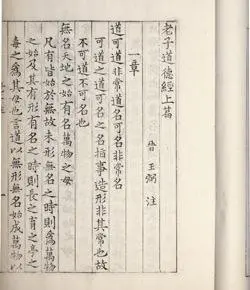 老子道德經上篇
晉 王弼 注
一章
道可道非常道名可名非常名
可道之道可名之名指事造形非其常也故
不可道不可名也
無名天地之始有名萬物之母
凡有皆始於無故未形無名之時則為萬物
之始及其有形有名之時則長之育之亭之
毒之為其母也言道以無形無名始成萬物以